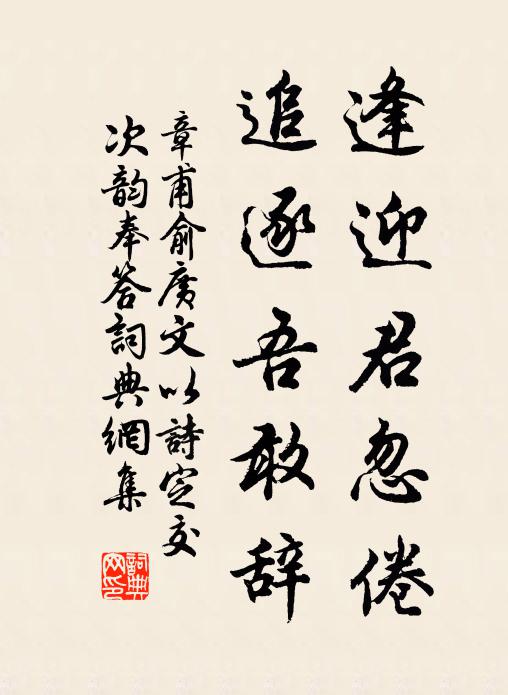 逢迎君忽倦
追逐吾敢辞
章甫俞廣文以詩定交
次韵奉答詞典網集
詞典
网印